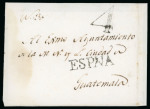 4
Al Exmo Ayuntamiento
de la M. N. y L. Ciudad de
ESPÑA
Guatemala